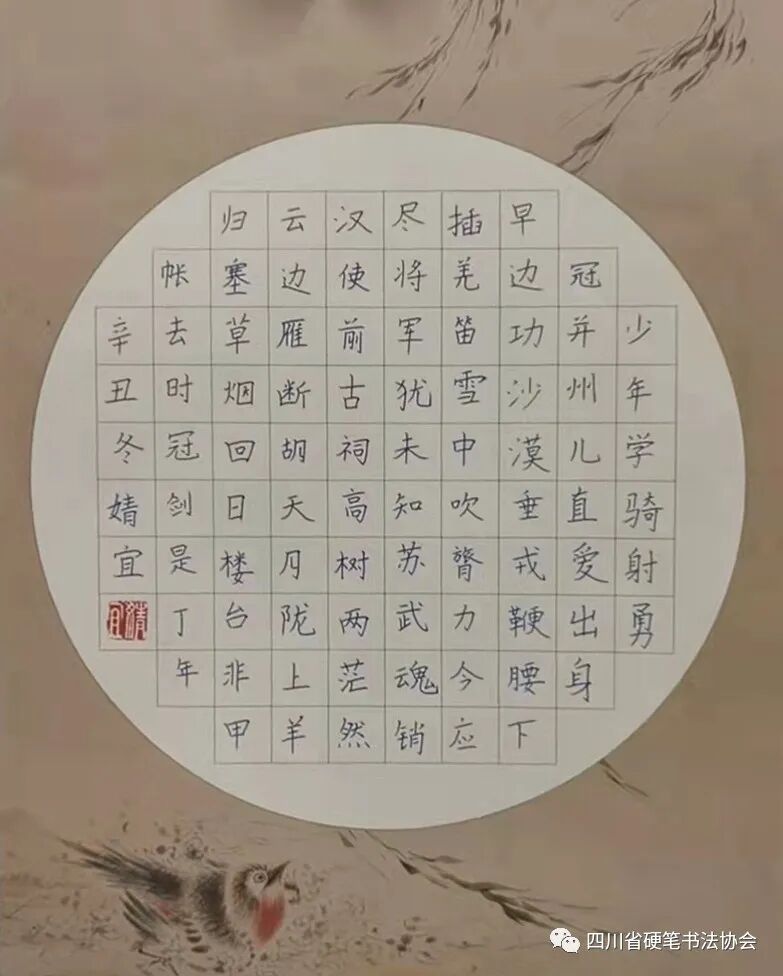 少年学骑射勇
冠并州儿直爱出身
早边功沙漠垂戎鞭腰下
插羌笛雪中吹膂力今应
尽将军犹未知苏武魂销
汉使前古祠高树两茫然
云边雁断胡天月陇上羊
归塞草烟回日楼台非甲
帐去时冠剑是丁年
辛丑冬婧宜
婧宜
四川省硬笔书法协会